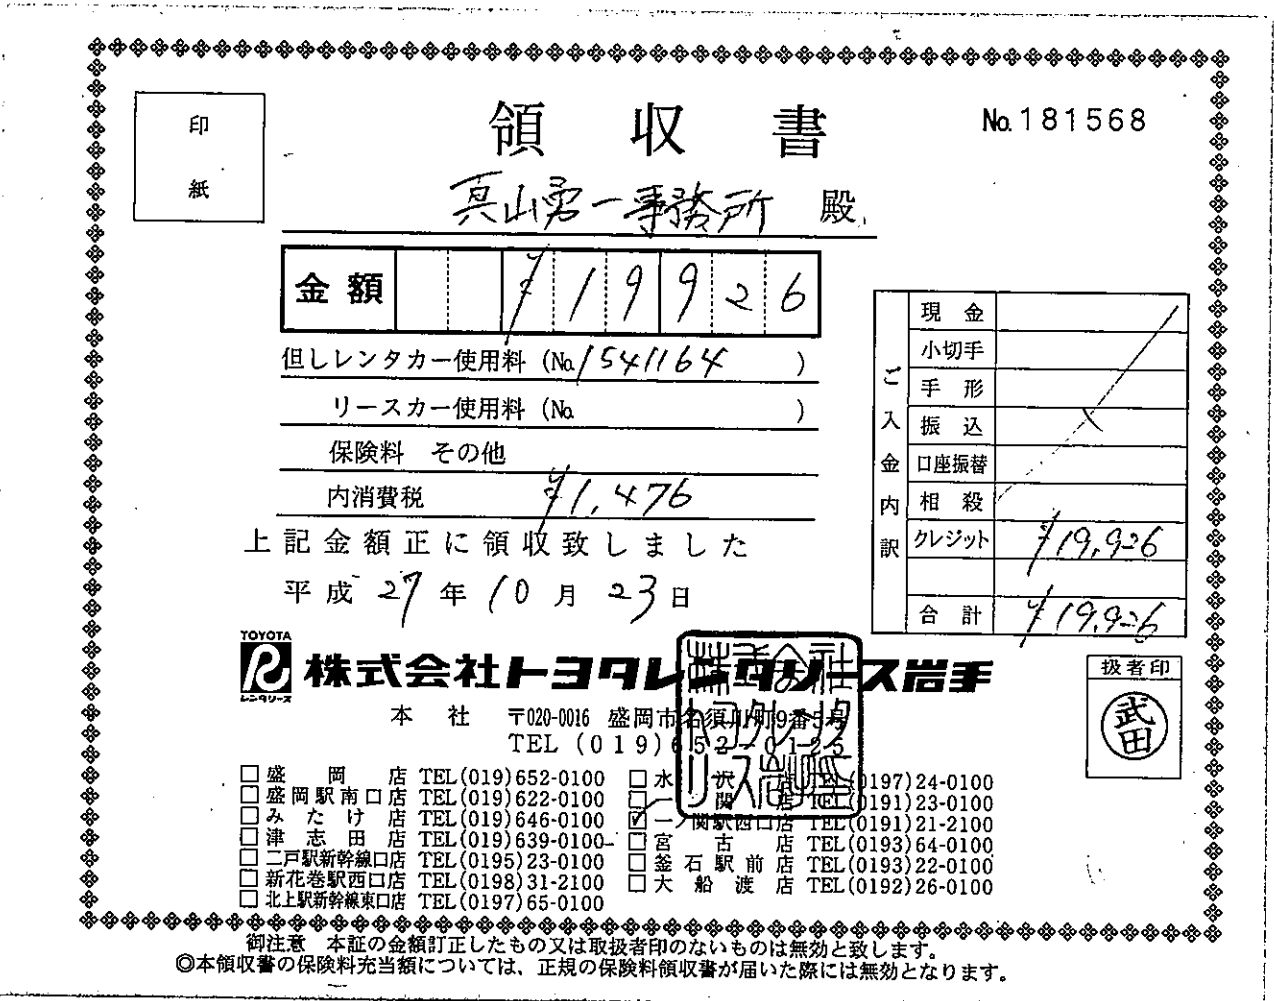 印
紙
領収書
No.181568
真山勇一事務所 殿
金額 ¥19926
但しレンタカー使用料 (No.1541164 )
リースカー使用料 (No. )
保険料 その他
内消費税 ¥1,476
上記金額正に領収致しました
平成 27年 10月 23日
ご入金内訳
現金
小切手
手形
振込
口座振替
相殺
クレジット ¥19,926
合計 ¥19,926
TOYOTA
レンタリース
株式会社トヨタレンタリース岩手
扱者印
武田
本社 〒020-0016 盛岡市名須川町9番5号
TEL (019)652-0125
株式会社
トヨタレンタ
リース岩手
□盛岡店 TEL(019)652-0100
□盛岡駅南口店 TEL(019)622-0100
□みたけ店 TEL(019)646-0100
□津志田店 TEL(019)639-0100
□二戸駅新幹線口店 TEL(0195)23-0100
□新花巻駅西口店 TEL(0198)31-2100
□北上駅新幹線東口店 TEL(0197)65-0100
□水沢店 TEL(0197)24-0100
□一関店 TEL(0191)23-0100
☑一ノ関駅西口店 TEL(0191)21-2100
□宮古店 TEL(0193)64-0100
□釜石駅前店 TEL(0193)22-0100
□大船渡店 TEL(0192)26-0100
御注意 本証の金額訂正したもの又は取扱者印のないものは無効と致します。
◎本領収書の保険料充当額については、正規の保険料領収書が届いた際には無効となります。